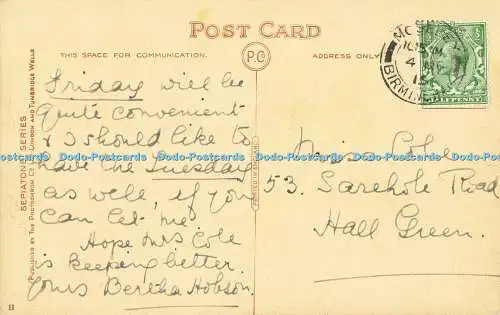 POST CARD
THIS SPACE FOR COMMUNICATION.
P.C
ADDRESS ONLY
Friday will be
quite convenient
& I should like to
have the Tuesday
as well, if you
can let me.
Hope Mrs Cole
is keeping better.
Yours Bertha Hobson.
Miss Cole
53. Sarehole Road
Hall Green.
SEPIATONE SERIES
PUBLISHED BY THE PHOTOCHROM CO. LTD. LONDON AND TUNBRIDGE WELLS
PRINTED IN ENGLAND
MOSELEY
10.15 AM
4 MY
BIRMING
HALFPENNY
Dodo-Postcards Dodo-Postcards Dodo-Postcards Dodo-Postcards Dodo-Postcards
11